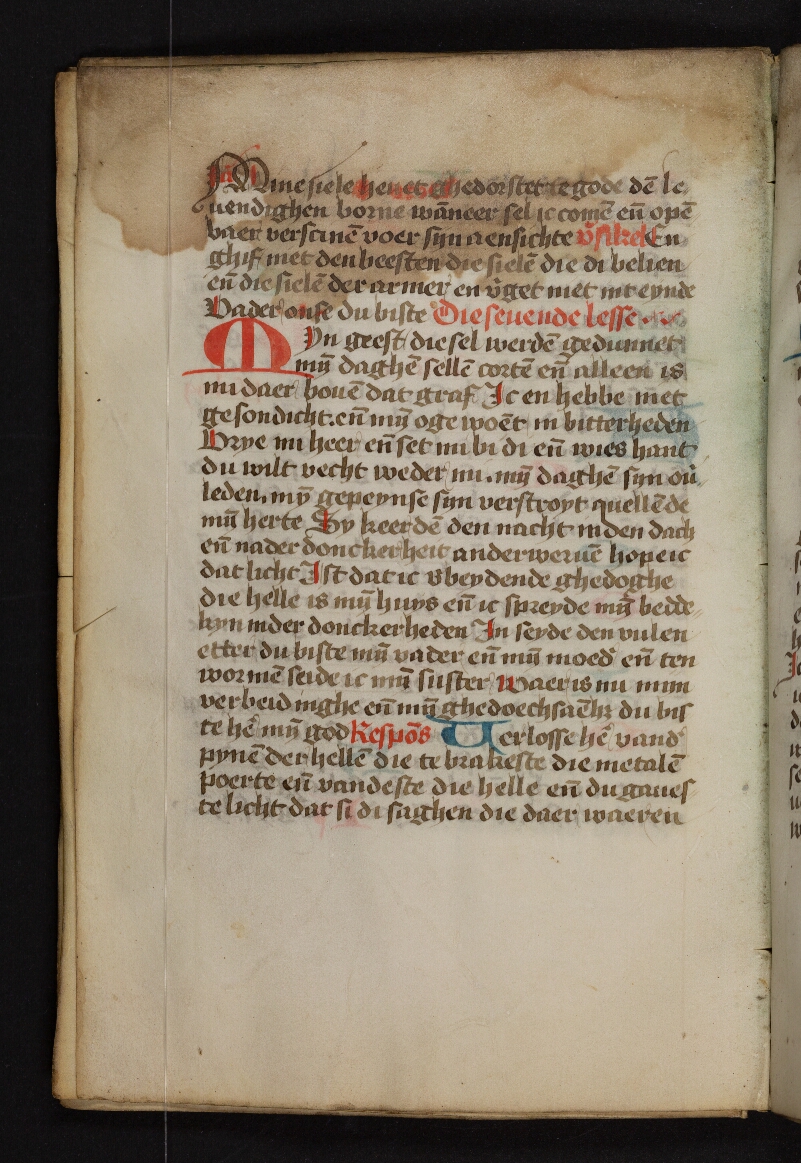 Mine siele hevet ghedorstet te gode dē le
uendighen borne wāneer sel ic comē en̄ opē
baer verscinē voer sijn aensichte v̄sikel En
ghif niet den beesten die sielē die di belien
en̄ die sielē der armer en v̄get niet int eynde
Vader onse du biste Die seuende lesse
MYn geest die sel werdē gedunnet
mijn̄ daghē sellē cortē en̄ alleen is
mi daer bouē dat graf Ic en hebbe niet
gesondicht. en̄ mijn̄ oge woēt in bitterheden
Vrye mi heer en̄ set mi bi di en̄ wies hant
du wilt vecht weder mi. mijn̄ daghē sijn ou̅
leden. mijn̄ gepeynse sijn verstroyt quellēde
mijn̄ herte Sy keerdē den nacht inden dach
en̄ na der donckerheit anderweruē hope ic
dat licht Ist dat ic v̄beydende ghedoghe
die helle is mijn̄ huys en̄ ic spreyde mijn̄ bedde
kyn inder donckerheden In seyde den vulen
etter du biste mijn̄ vader en̄ mijn̄ moed̄ en̄ ten
wormē seide ic mijn̄ suster Waer is nu mijn
verbeidinghe en̄ mijn̄ ghedoechsaēh̄z du bis
te hē mijn̄ god Respōs Uerlosse hē vand̄
pynē der hellē die te brakeste die metalē
poerte en̄ vandeste die helle en̄ du gaues
te licht dat si di saghen die daer waeren